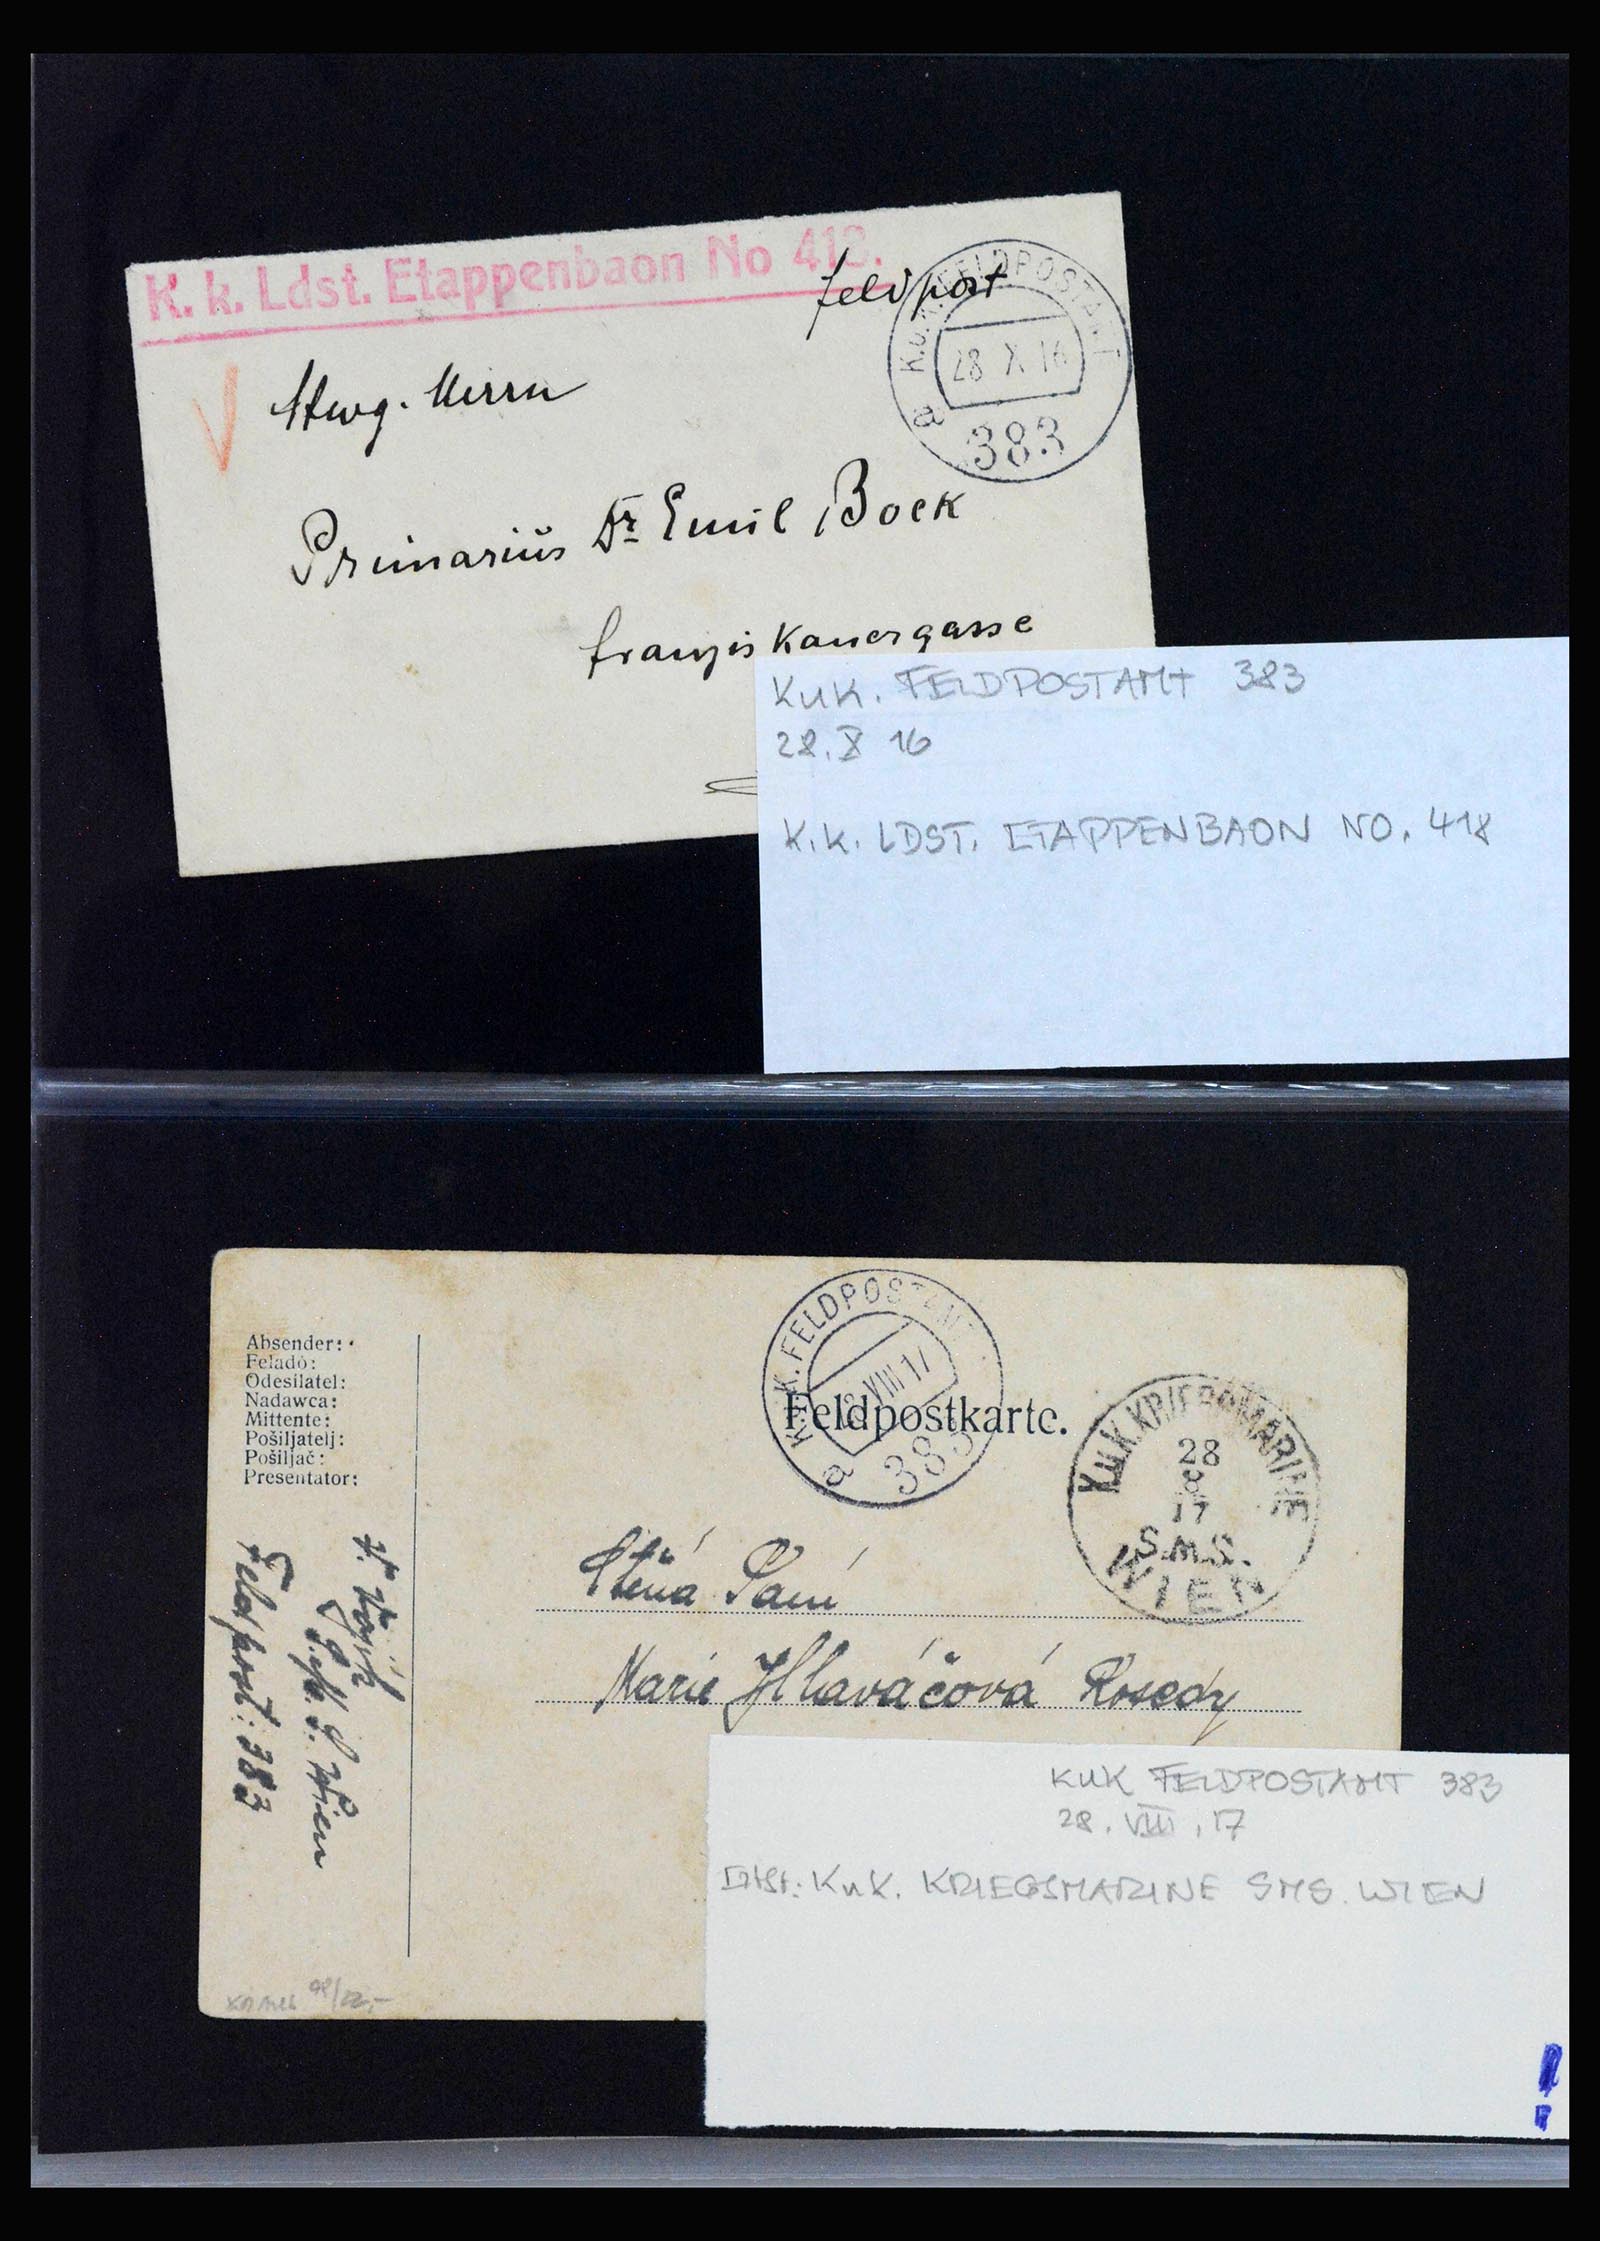 K. k. Ldst. Etappenbaon No 418.
feldpost
K.u.K. FELDPOSTAMT
28 X 16
a
383
Herrn
Primarius Dr Emil Bock
Franziskanergasse
KUK. FELDPOSTAMT 383
28. X 16
K.K. LDST. ETAPPENBAON NO. 418
Absender:
Feladó:
Odesilatel:
Nadawca:
Mittente:
Pošiljatelj:
Pošiljač:
Presentator:
K.u.K. FELDPOSTAMT
28 VIII 17
a
383
Feldpostkarte.
K.u.K. KRIEGSMARINE
28
8
17
S.M.S.
WIEN
Ctěná Paní
Marie Hlaváčová Rosedy
S.M.S. Wien
Feldpost: 383
KUK FELDPOSTAMT 383
28. VIII. 17
KuK. KRIEGSMARINE SMS. WIEN
!